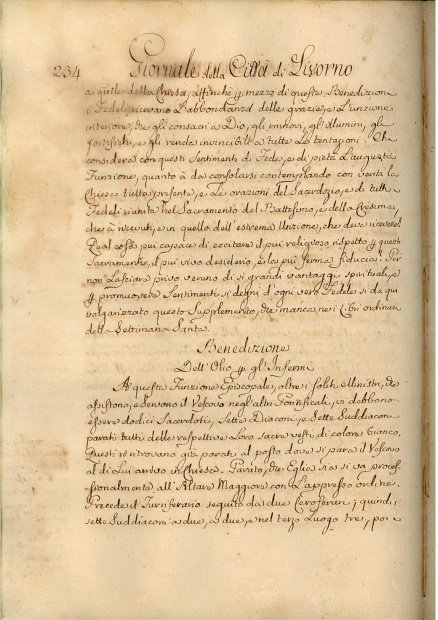 234 Giornale della Città di Livorno
a quelle della Chiesa, affinchè p mezzo di questa Benedizione
i Fedeli ricevano l'abbondanza delle grazie, e l'unzione
interiore, che gli consacri a Dio, gli rinnovi, gl'illumini, gli
fortifichi, e gli renda invincibili a tutte le tentazioni. Chi
considera con questi Sentimenti di Fede, e di pietà l'augusta
Funzione, quanto à da consolarsi contemplando con verità la
Chiesa tutta presente, e le orazioni del Sacerdozio, e di tutti
Fedeli riunita nel Sacramento del Battesimo, e della Cresima
che à ricevuti, e in quello dell'estrema Unzione, che deve ricevere!
Qual cosa piu capace di eccitare il piu religioso rispetto p questi
Sacramenti, il piu vivo desiderio, e la piu ferma fiducia! Per
non lasciare privo veruno di si grandi vantaggi spirituali, e
p promuovere Sentimenti si degni d'ogni vero Fedele si da qui
volgarizzato questo Supplemento, che manca ne i Libri ordinari
della Settimana Santa.
Benedizione
Dell'Olio p gl'Infermi
A questa Funzione Episcopale, oltre i soliti Ministri, che
assistono, e servono il Vescovo negl'altri Pontificali, vi debbono
essere dodici Sacerdoti, Sette Diaconi, e Sette Suddiaconi
parati tutti delle respettive loro sacre vesti di colore bianco.
Questi si ritrovano già parati al posto dove si para il Vescovo
al di Lui arrivo in Chiesa. Parato, che Egli è si va proces-
sionalmente all'Altare Maggiore con l'appresso ordine.
Precede il Turiferario seguito da due Ceroferari; quindi i
sette Suddiaconi a due, a due, e nel terzo luogo tre, poi i